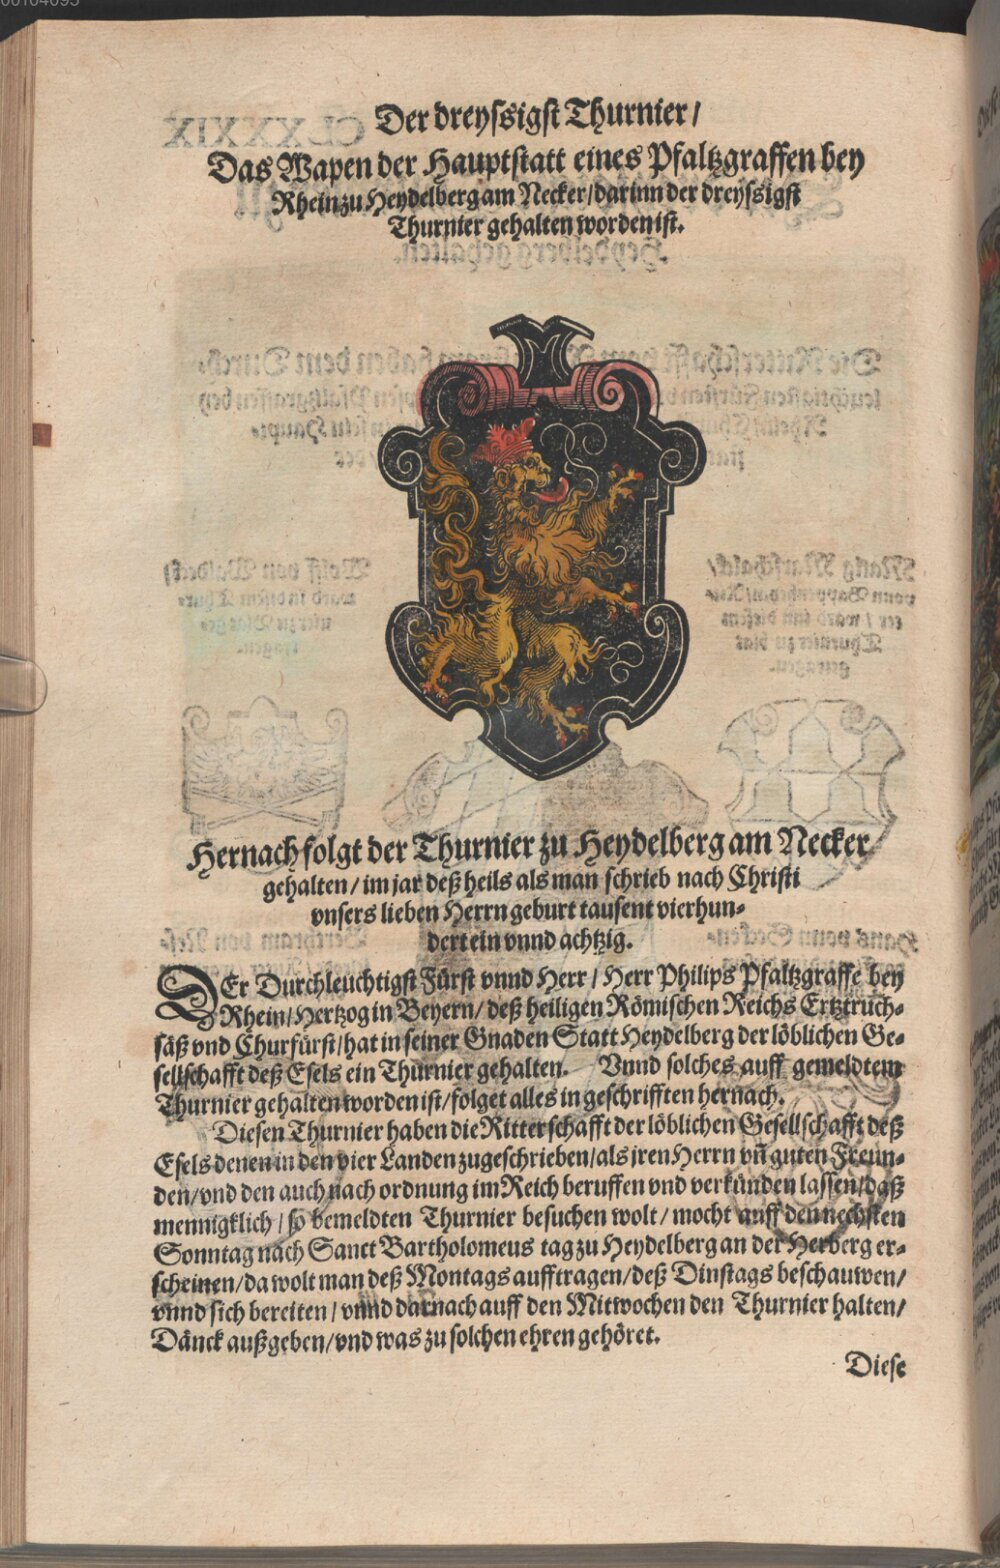 00104095
Der dreyssigst Thurnier /
Das Wapen der Hauptstatt eines Pfaltzgraffen bey
Rhein zu Heydelberg am Necker / darinn der dreyssigst
Thurnier gehalten worden ist.
Hernach folgt der Thurnier zu Heydelberg am Necker
gehalten / im jar deß heils als man schrieb nach Christi
vnsers lieben Herrn geburt tausent vierhun-
dert ein vnnd achtzig.
DEr Durchleuchtigst Fürst vnnd Herr / Herr Philips Pfaltzgraffe bey
Rhein / Hertzog in Beyern / deß heiligen Römischen Reichs Ertztruch-
säß vnd Churfürst / hat in seiner Gnaden Statt Heydelberg der löblichen Ge-
sellschafft deß Esels ein Thurnier gehalten. Vnnd solches auff gemeldtem
Thurnier gehalten worden ist / folget alles in geschrifften hernach.
Diesen Thurnier haben die Ritterschafft der löblichen Gesellschafft deß
Esels denen in den vier Landen zugeschrieben / als iren Herrn vñ guten Freun-
den / vnd den auch nach ordnung im Reich beruffen vnd verkünden lassen / daß
mennigklich / so bemeldten Thurnier besuchen wolt / mocht auff den nechsten
Sonntag nach Sanct Bartholomeus tag zu Heydelberg an der Herberg er-
scheinen / da wolt man deß Montags aufftragen / deß Dinstags beschauwen /
vnnd sich bereiten / vnnd darnach auff den Mitwochen den Thurnier halten /
Dänck außgeben / vnd was zu solchen ehren gehöret.
Diese